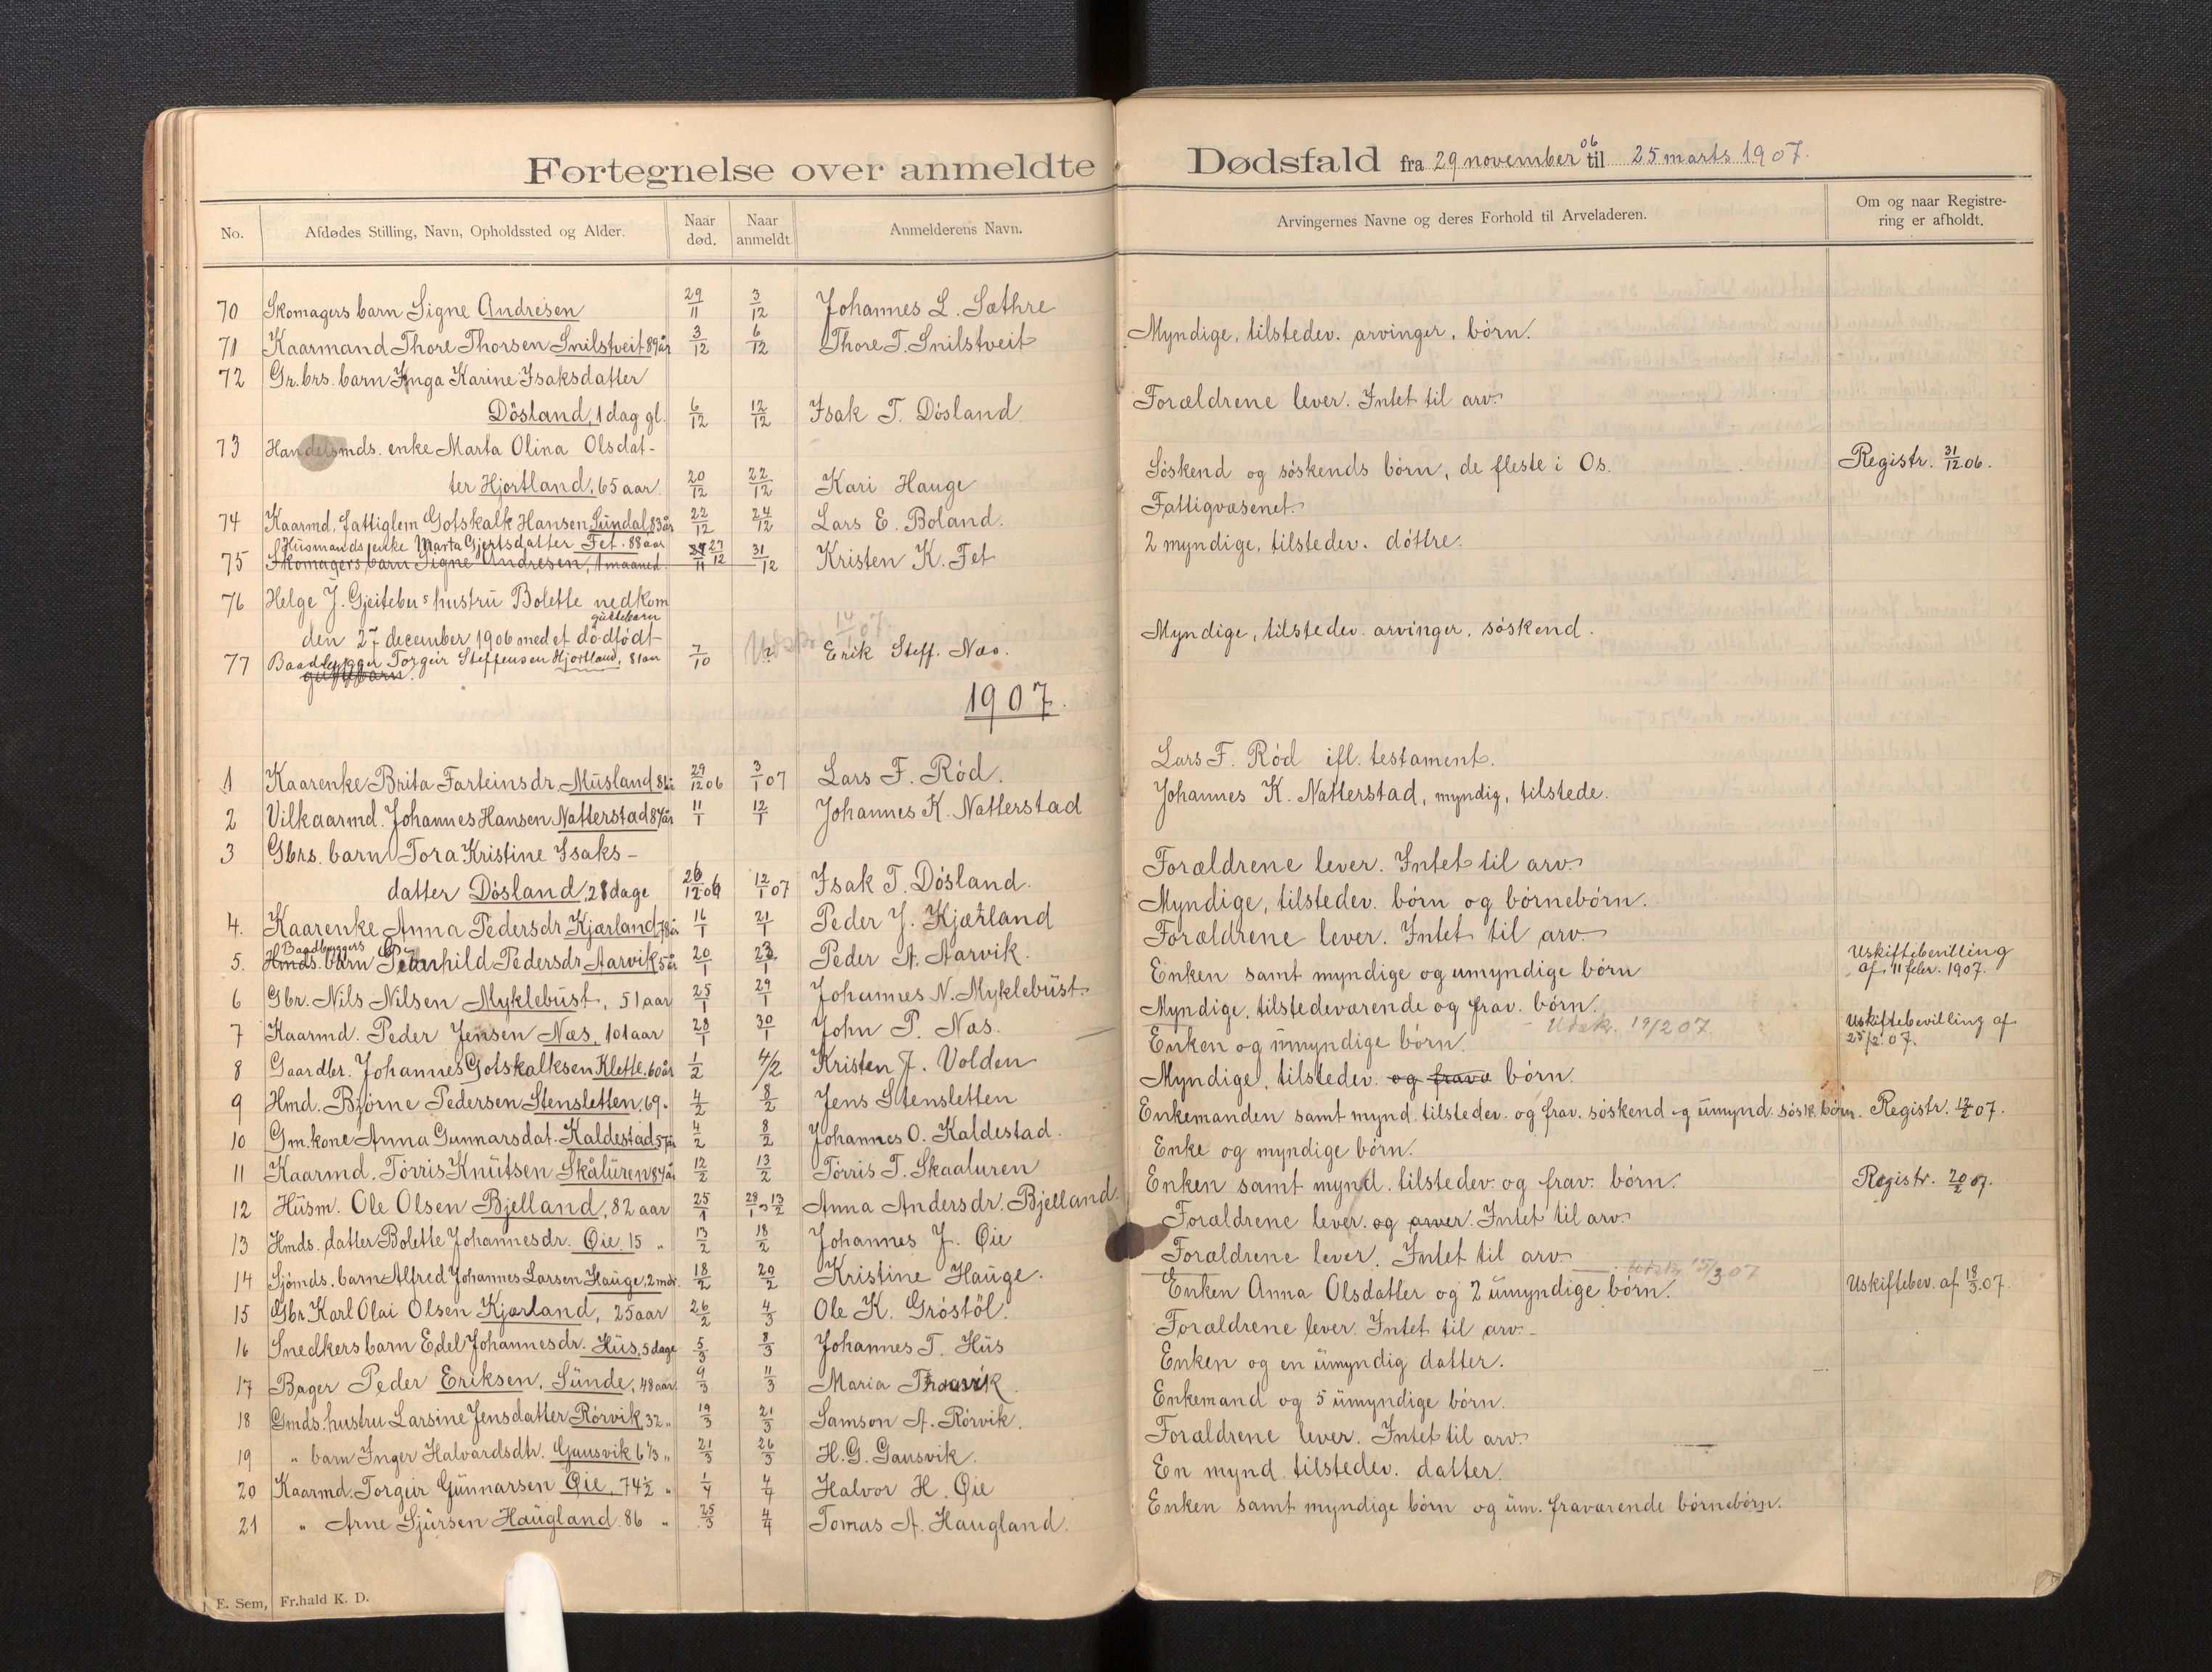 Fortegnelse over anmeldte Dødsfald fra 29 november 06 til 25 marts 1907.
No. Afdødes Stilling, Navn, Opholdssted og Alder. Naar død. Naar anmeldt Anmelderens Navn. Arvingernes Navne og deres Forhold til Arveladeren. Om og naar Registrering er afholdt.
70 Skomagers barn Signe Andresen 29/11 3/12 Johannes L. Sæthre
71 Kaarmand Thore Thorsen Snilstveit 89 år 3/12 6/12 Thore T. Snilstveit Myndige, tilstedev. arvinger, børn.
72 Gr.brs. barn Inga Karine Isaksdatter
Dösland, 1 dag gl. 6/12 12/12 Isak T. Dösland Forældrene lever. Intet til arv.
73 Handelsmds. enke Marta Olina Olsdat-
ter Hjortland, 65 aar 20/12 22/12 Kari Hauge Söskend og söskends børn, de fleste i Os. Registr. 31/12 06.
74 Kaarmd. fattiglem Gotskalk Hansen Sundal 83 år 22/12 24/12 Lars E. Boland. Fattigvæsenet.
Husmands enke Marta Gjertsdatter Fet. 88 aar
75 Skomagers barn Signe Andresen, 1 maaned 27/12 31/12 Kristen K. Fet 2 myndige, tilstedev. döttre.
76 Helge J. Gjeitebus hustru Bolette nedkom
den 27 december 1906 med et dødfødt
guttebarn
guttebarn.
77 Baadbygger Torgeir Steffensen Hjortland, 81 aar 7/10 ? Erik Steff. Næs. Myndige, tilstedev. arvinger, söskend.
Udsk. 14/1 07.
1907.
1 Kaarenke Brita Farteinsdr. Musland 29/12 06 3/1 07 Lars F. Röd. Lars F. Röd ifl. testament.
2 Vilkaarmd. Johannes Hansen Natterstad 87 år 11/1 12/1 Johannes K. Natterstad Johannes K. Natterstad, myndig, tilstede.
3 Gbrs. barn Tora Kristine Isaks-
datter Dösland, 28 dage 26/12 06 12/1 07 Isak T. Dösland. Forældrene lever. Intet til arv.
4. Kaarenke Anna Pedersdr Kjærland 78 år 16/1 21/1 Peder J. Kjærland Myndige, tilstedev. börn og börnebörn.
5. Hmds. Baadbyggers barn Gunhild Pedersdr Aarvik 5 år 20/1 23/1 Peder A. Aarvik. Forældrene lever. Intet til arv.
6 Gbr. Nils Nilsen Myklebust, 51 aar 25/1 29/1 Johannes N. Myklebust Enken samt myndige og umyndige börn Uskiftebevilling af 11 febr. 1907.
7 Kaarmd. Peder Jensen Næs, 101 aar 28/1 30/1 John P. Næs. Myndige, tilstedeværende og frav. börn.
8 Gaardbr. Johannes Gotskalksen Klette. 60 år 1/2 4/2 Kristen J. Volden Enken og umyndige börn. Udsk. 19/2 07 Uskiftebevilling af 25/2 07.
9 Hmd. Bjørne Pedersen Stensletten, 69 " 4/2 8/2 Jens Stensletten Myndige, tilstedev. og frav. börn.
10 Gm.kone Anna Gunnarsdat. Kaldestad, 57 år 4/2 8/2 Johannes O. Kaldestad. Enkemanden samt mynd. tilstedev. og frav. söskend og umynd. sösk. börn. Registr. 12/2 07.
11 Kaarmd. Törris Knutsen Skåluren 84 år 12/2 13/2 Törris T. Skaaluren Enke og myndige börn.
12 Husm. Ole Olsen Bjelland, 82 aar 25/1 28/1 13/2 Anna Andersdr. Bjelland. Enken samt mynd. tilstedev. og frav. börn. Registr. 20/2 07.
13 Hmds. datter Bolette Johannesdr. Øie, 15 " 13/2 18/2 Johannes J. Øie Forældrene lever. og arver. Intet til arv.
14 Sjömds. barn Alfred Johannes Larsen Hauge, 2 mdr. 18/2 20/2 Kristine Hauge. Forældrene lever. Intet til arv.
15 Gbr. Karl Olai Olsen Kjærland, 25 aar 26/2 4/3 Ole K. Gröstöl. Enken Anna Olsdatter og 2 umyndige börn. Udsk. 15/3 07 Uskiftebev. af 18/3 07.
16 Snedkers barn Edel Johannesdr. Hus, 5 dage 5/3 8/3 Johannes T. Hus Forældrene lever. Intet til arv.
17 Bager Peder Eriksen, Sunde, 48 aar. 9/3 11/3 Maria Enken og en umyndig datter.
18 Gmds. hustru Larsine Jensdatter Rörvik, 32 " 19/3 21/3 Samson A. Rörvik. Enkemand og 5 umyndige börn.
19 " barn Inger Halvardsdtr. Gausvik 6 1/3 " 21/3 26/3 H. G. Gausvik. Forældrene lever. Intet til arv.
20 Kaarmd. Torgeir Gunnarsen Øie, 74 1/2 " 1/4 4/4 Halvor H. Øie En mynd. tilstedev. datter.
21 " Arne Sjursen Haugland 86 " 25/3 4/4 Tomas A. Haugland. Enken samt myndige börn og um. fraværende börnebörn.
E. Sem, Fr.hald K. D.